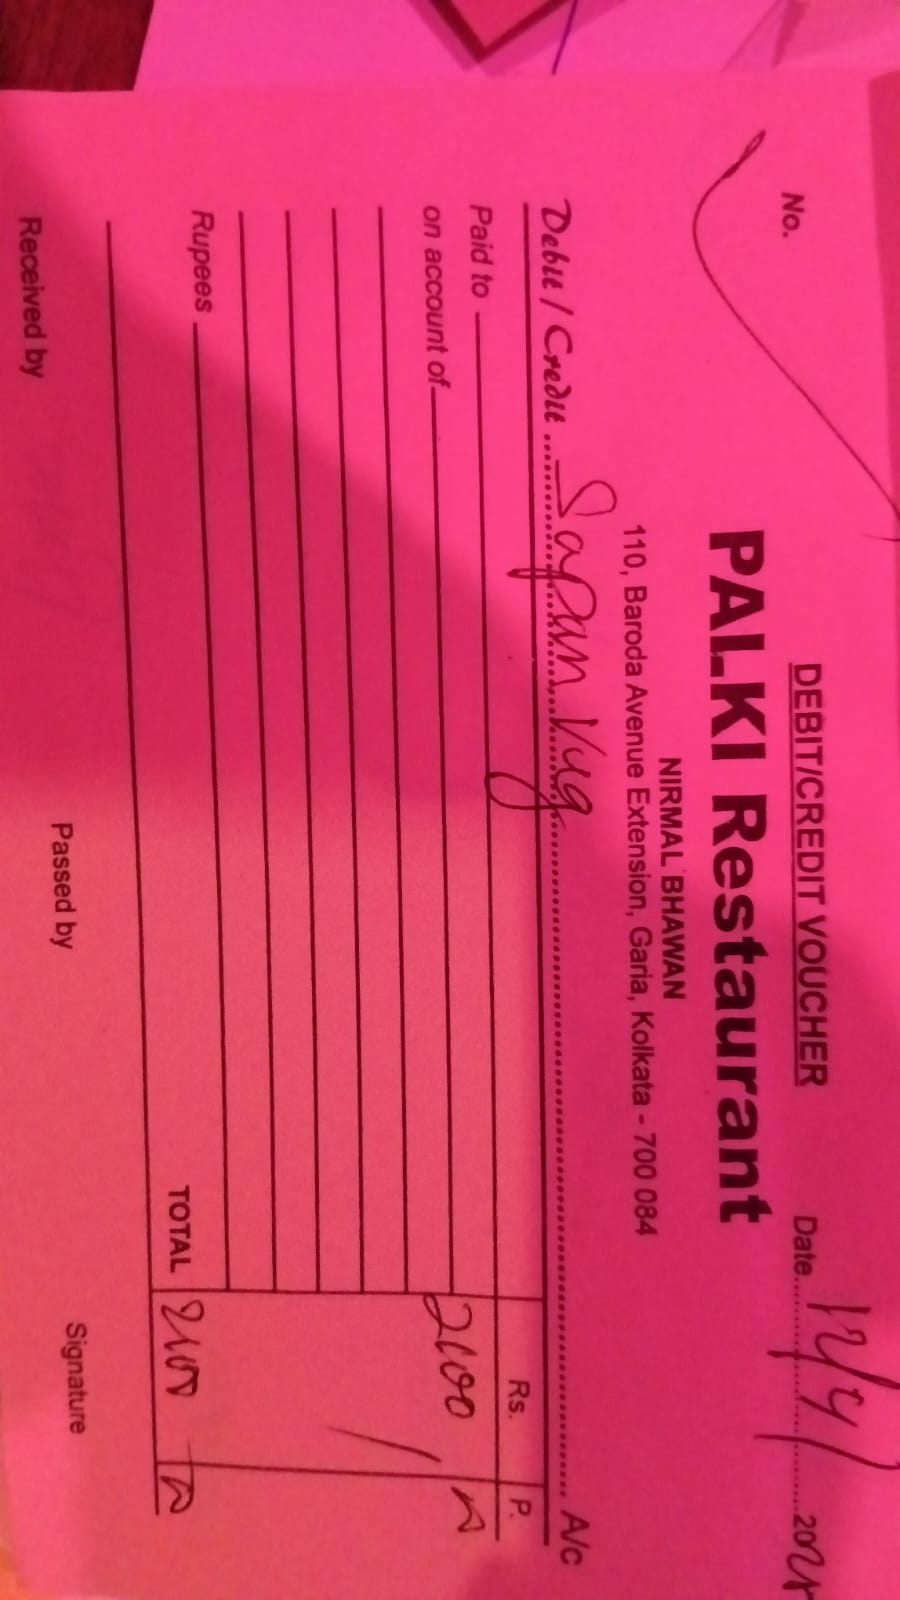 DEBIT/CREDIT VOUCHER
No. Date..............202
PALKI Restaurant
NIRMAL BHAWAN
110, Baroda Avenue Extension, Garia, Kolkata - 700 084
Debit / Credit .......Sapan.......A/c
Paid to Rs. P.
on account of
Rupees TOTAL
Received by Passed by Signature